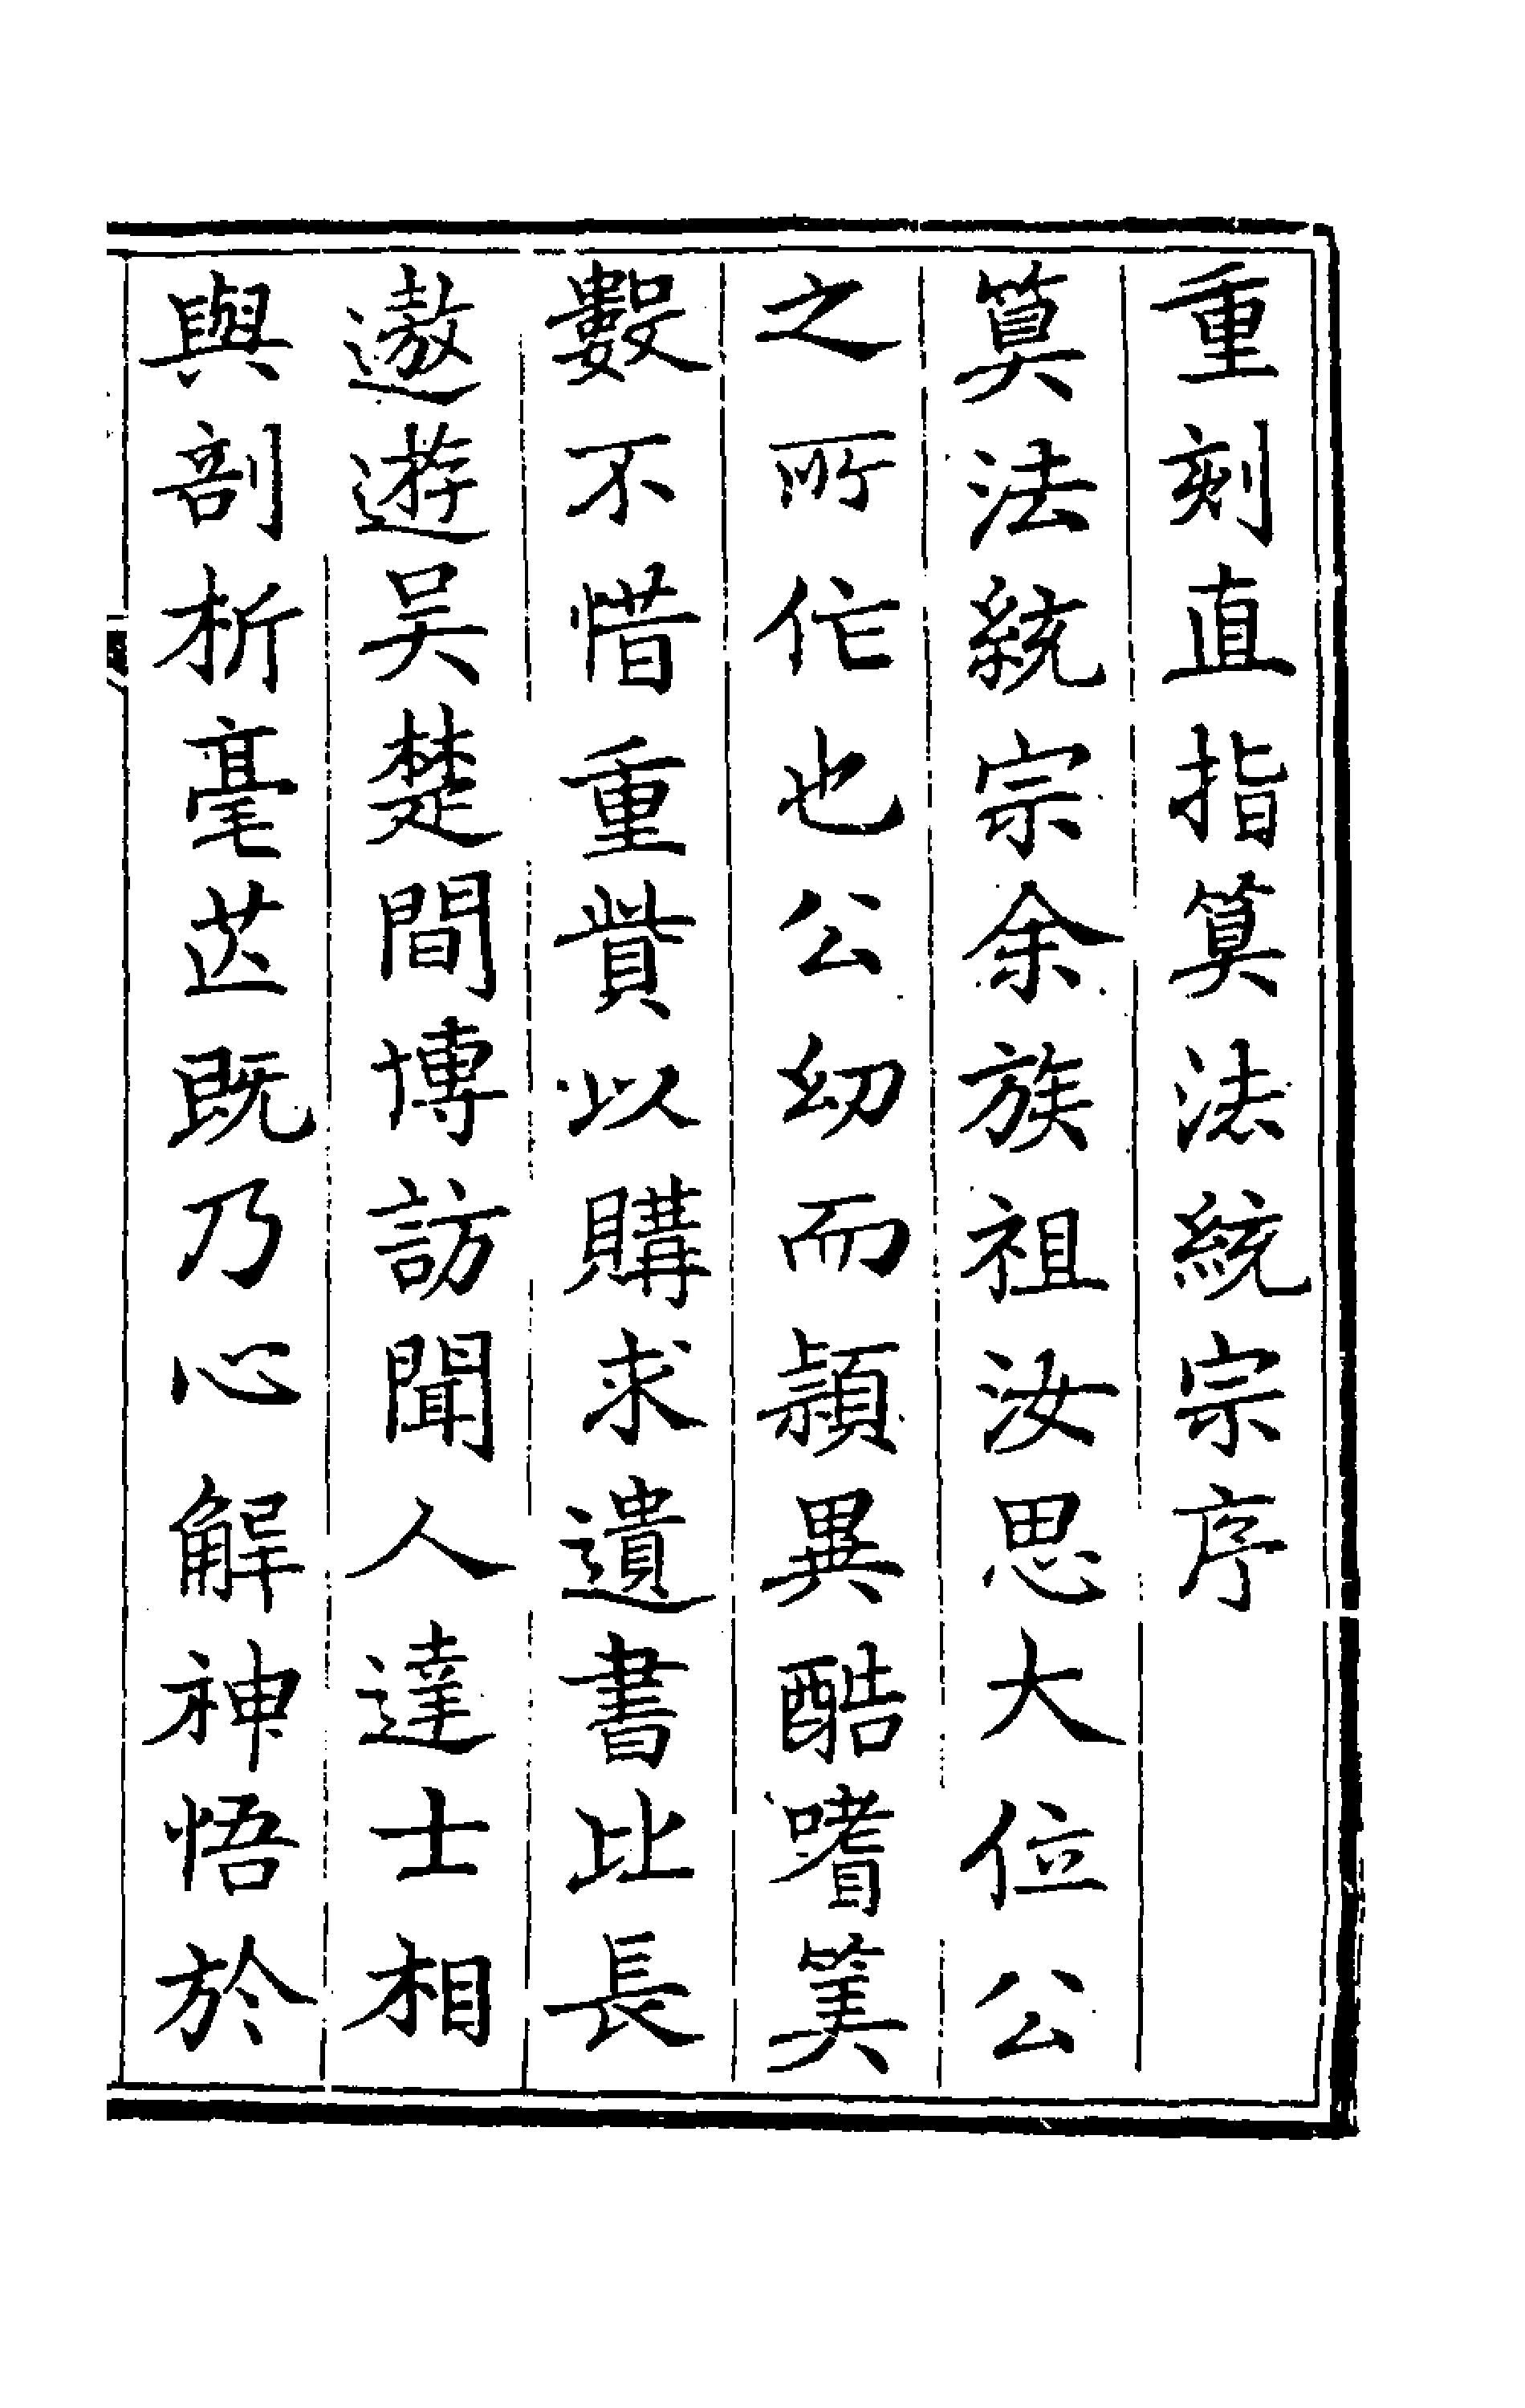 重刻直指筭法統宗序
筭法統宗余族祖汝思大位公
之所作也公幼而穎異酷嗜筭
數不惜重貲以購求遺書比長
遨遊吴楚間博訪聞人達士相
與剖析毫芒既乃心解神悟於